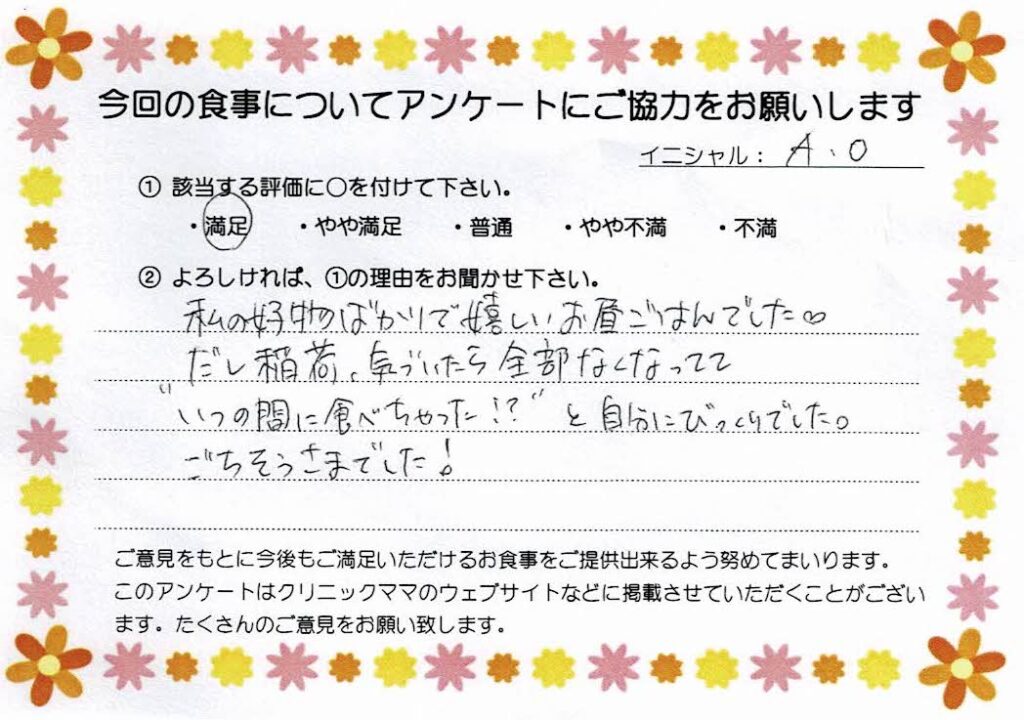 今回の食事についてアンケートにご協力をお願いします
イニシャル： A.O
① 該当する評価に○を付けて下さい。
・満足 ・やや満足 ・普通 ・やや不満 ・不満
② よろしければ、①の理由をお聞かせ下さい。
私の好物ばかりで嬉しいお昼ごはんでした♡
だし稲荷、気づいたら全部なくなってて
"いつの間に食べちゃった!?" と自分にびっくりでした。
ごちそうさまでした!
ご意見をもとに今後もご満足いただけるお食事をご提供出来るよう努めてまいります。
このアンケートはクリニックママのウェブサイトなどに掲載させていただくことがござい
ます。たくさんのご意見をお願い致します。